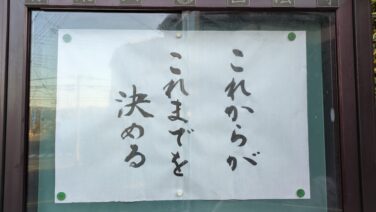 これからが
これまでを
決める